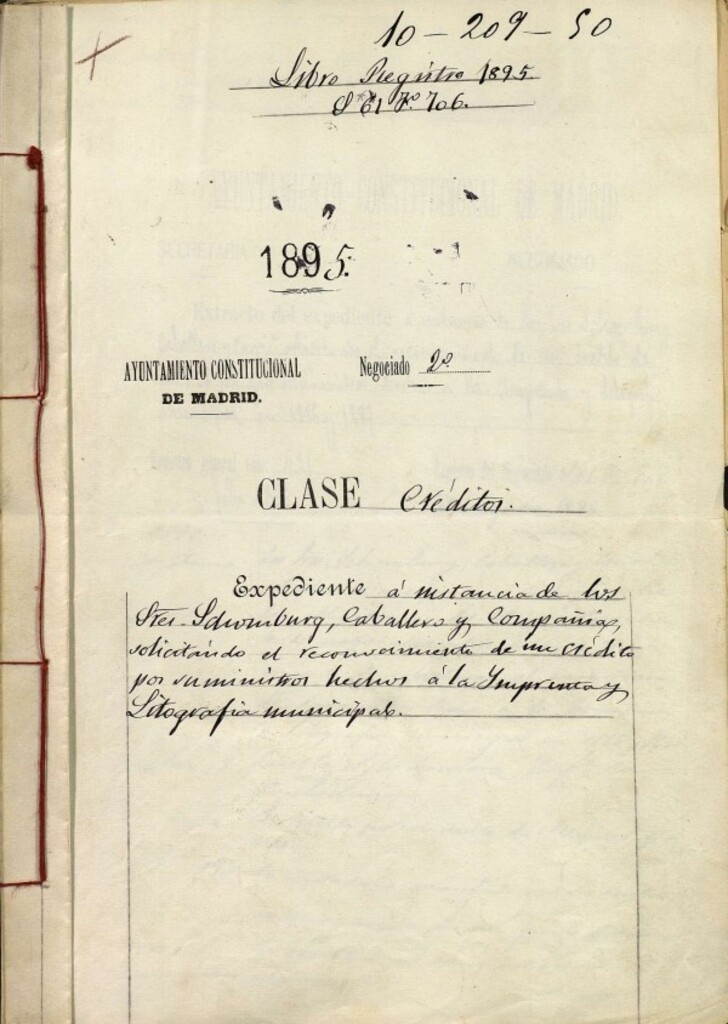 10 - 209 - 50
Libro Registro 1895.
Fº 706.
1895.
AYUNTAMIENTO CONSTITUCIONAL
DE MADRID.
Negociado 2º
CLASE Créditos.
Expediente á instancia de los
Sres. Schomburg, Caballero y Compañia,
solicitando el reconocimiento de un crédito
por suministros hechos á la Imprenta y
Litografia municipal.